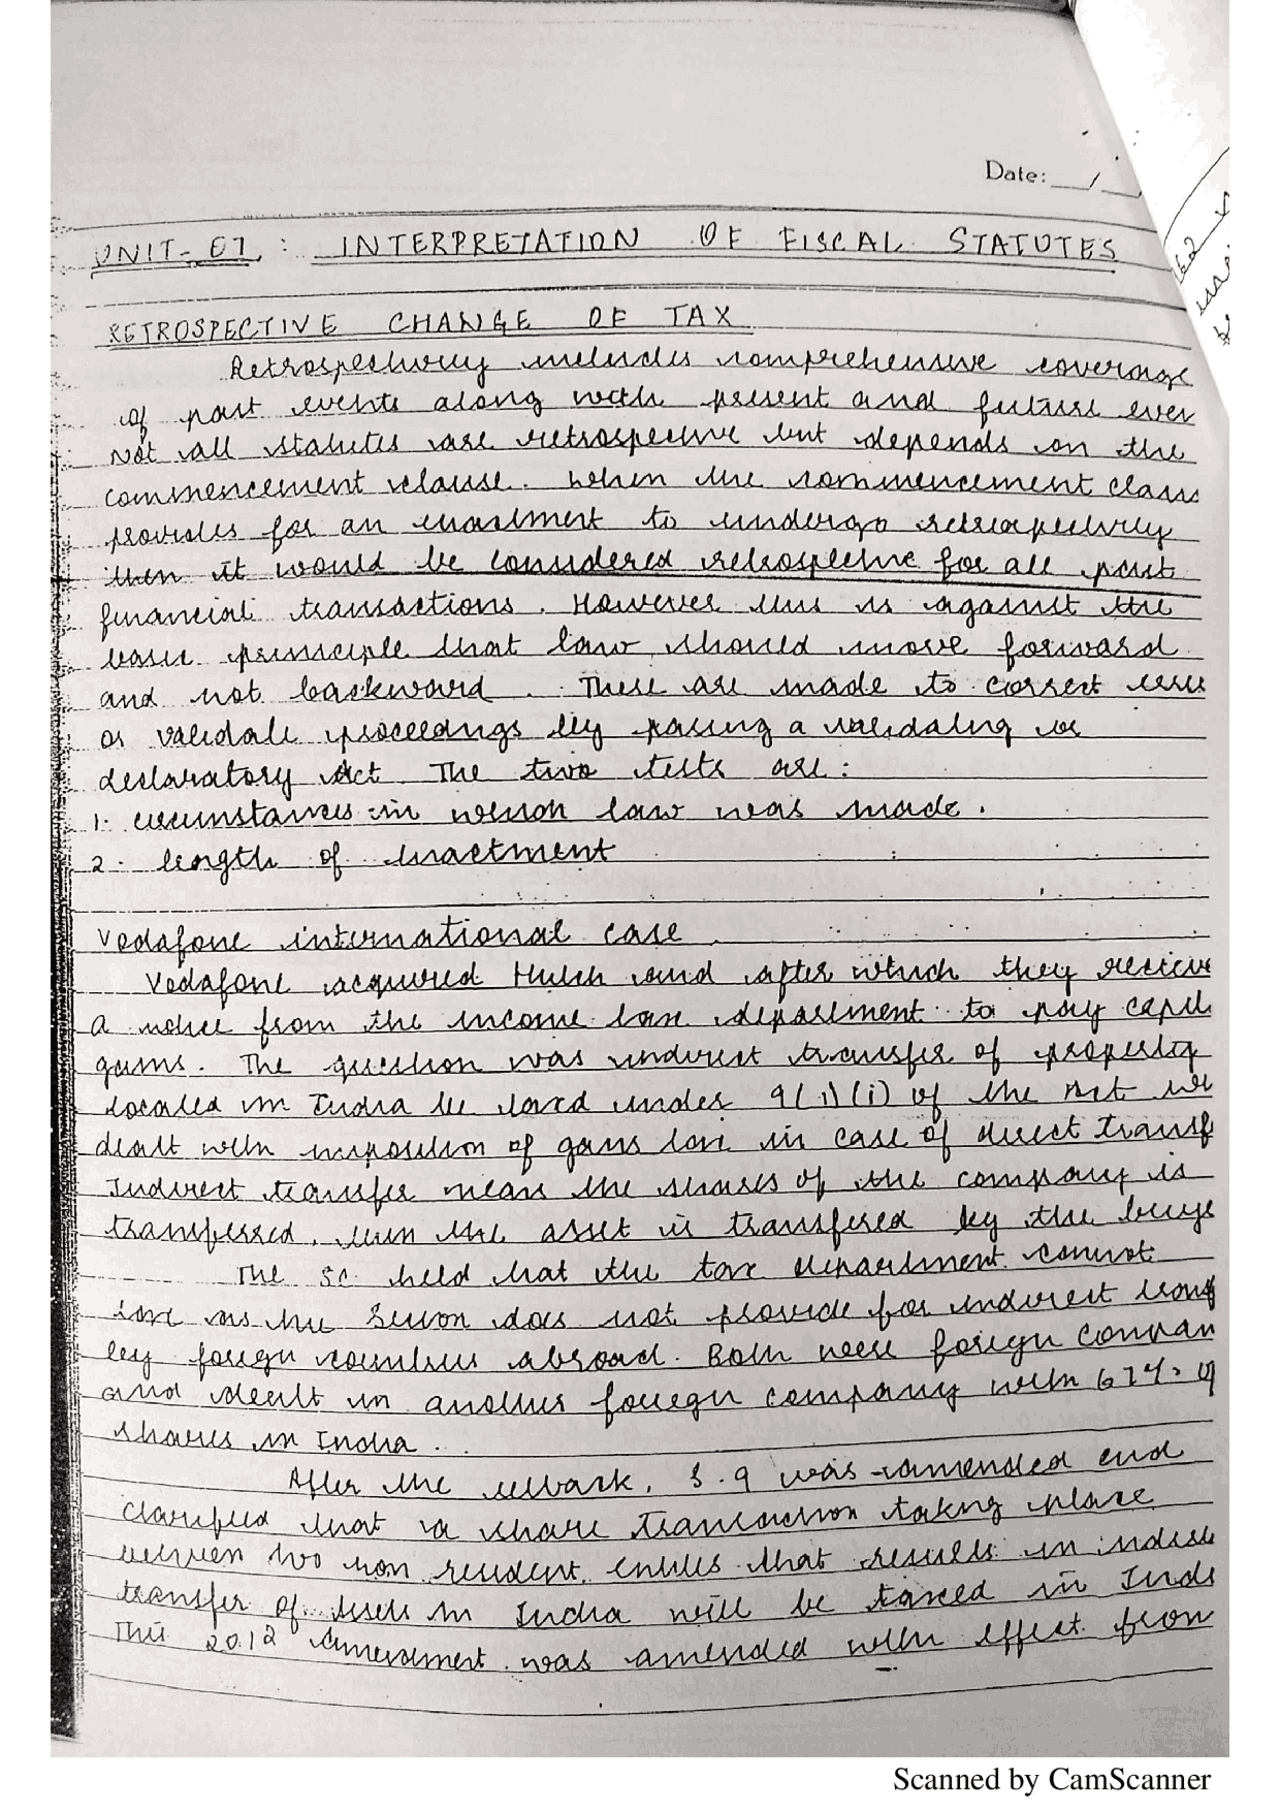 Date: __/__
UNIT-01 : INTERPRETATION OF FISCAL STATUTES
RETROSPECTIVE CHANGE OF TAX
Retrospectivity includes comprehensive coverage
of past events along with present and future even
Not all statutes are retrospective but depends on the
commencement clause. When the commencement claus
provides for an enactment to undergo retrospectivity
then it would be considered retrospective for all past
financial transactions. However this is against the
basic principle that law should move forward
and not backward. These are made to correct
or validate proceedings by passing a validating or
declaratory Act The two tests are:
1. circumstances in which law was made.
2. length of enactment
Vodafone international case
Vodafone acquired Hutch and after which they reciev
a notice from the income tax department to pay capit
gains. The question was indirect transfer of property
located in India be taxed under 9(1)(i) of the Act
dealt with imposition of gains tax in case of direct transf
Indirect transfer means the shares of the company is
transferred, then the asset is transfered by the buye
The SC held that the tax department cannot
tax as the Section does not provide for indirect trans
by foreign countries abroad. Both were foreign compan
and dealt in another foreign company with 67% of
shares in India.
After the setback, S.9 was amended and
clarified that a share transaction taking place
between two non resident entities that results in indire
transfer of assets in India will be taxed in Indi
This 2012 Amendment was amended with effect from
162
Scanned by CamScanner